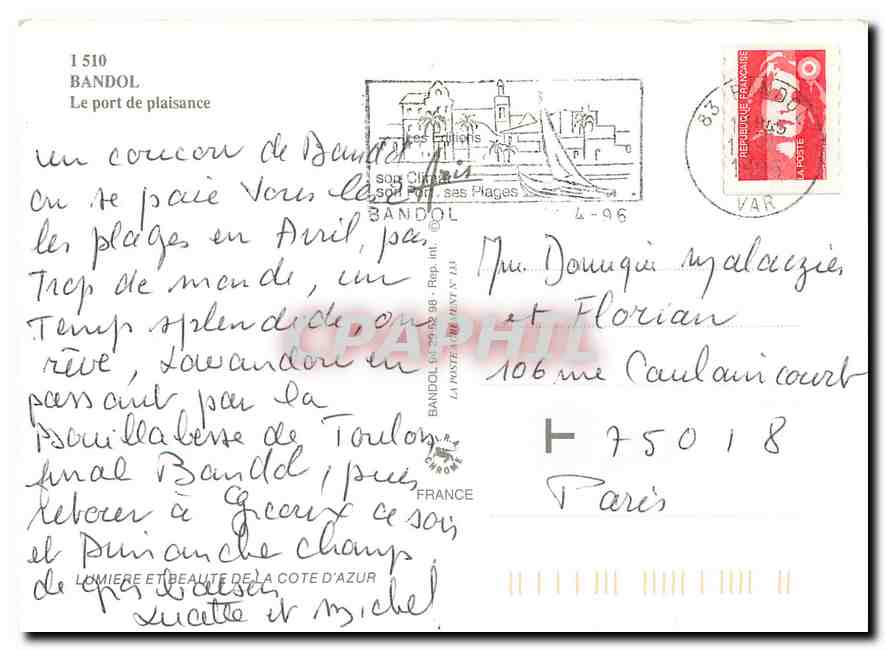 I 510
BANDOL
Le port de plaisance
un coucou de Bandol
on se paie Vous
les plages en Avril, pas
Trop de monde, un
Temps splendide, on
rêve, Lavandou en
passant par la
Bouillabesse de Toulon
final Bandol, puis
retour à Greoux ce soir
et Dimanche champ
de
Lucette et Michel
LUMIERE ET BEAUTE DE LA COTE D'AZUR
Les Editions
son Climat
son Port, ses Plages
BANDOL 4-96
BANDOL 94 29 52 98 - Rep. int. ©
LA POSTE AGREMENT N° 133
L.R.A.
CHROME
FRANCE
CPAPHIL
83 BANDOL
VAR
REPUBLIQUE FRANCAISE
LA POSTE
Mme Dominique
et Florian
106 rue Caulaincourt
T 75018
Paris